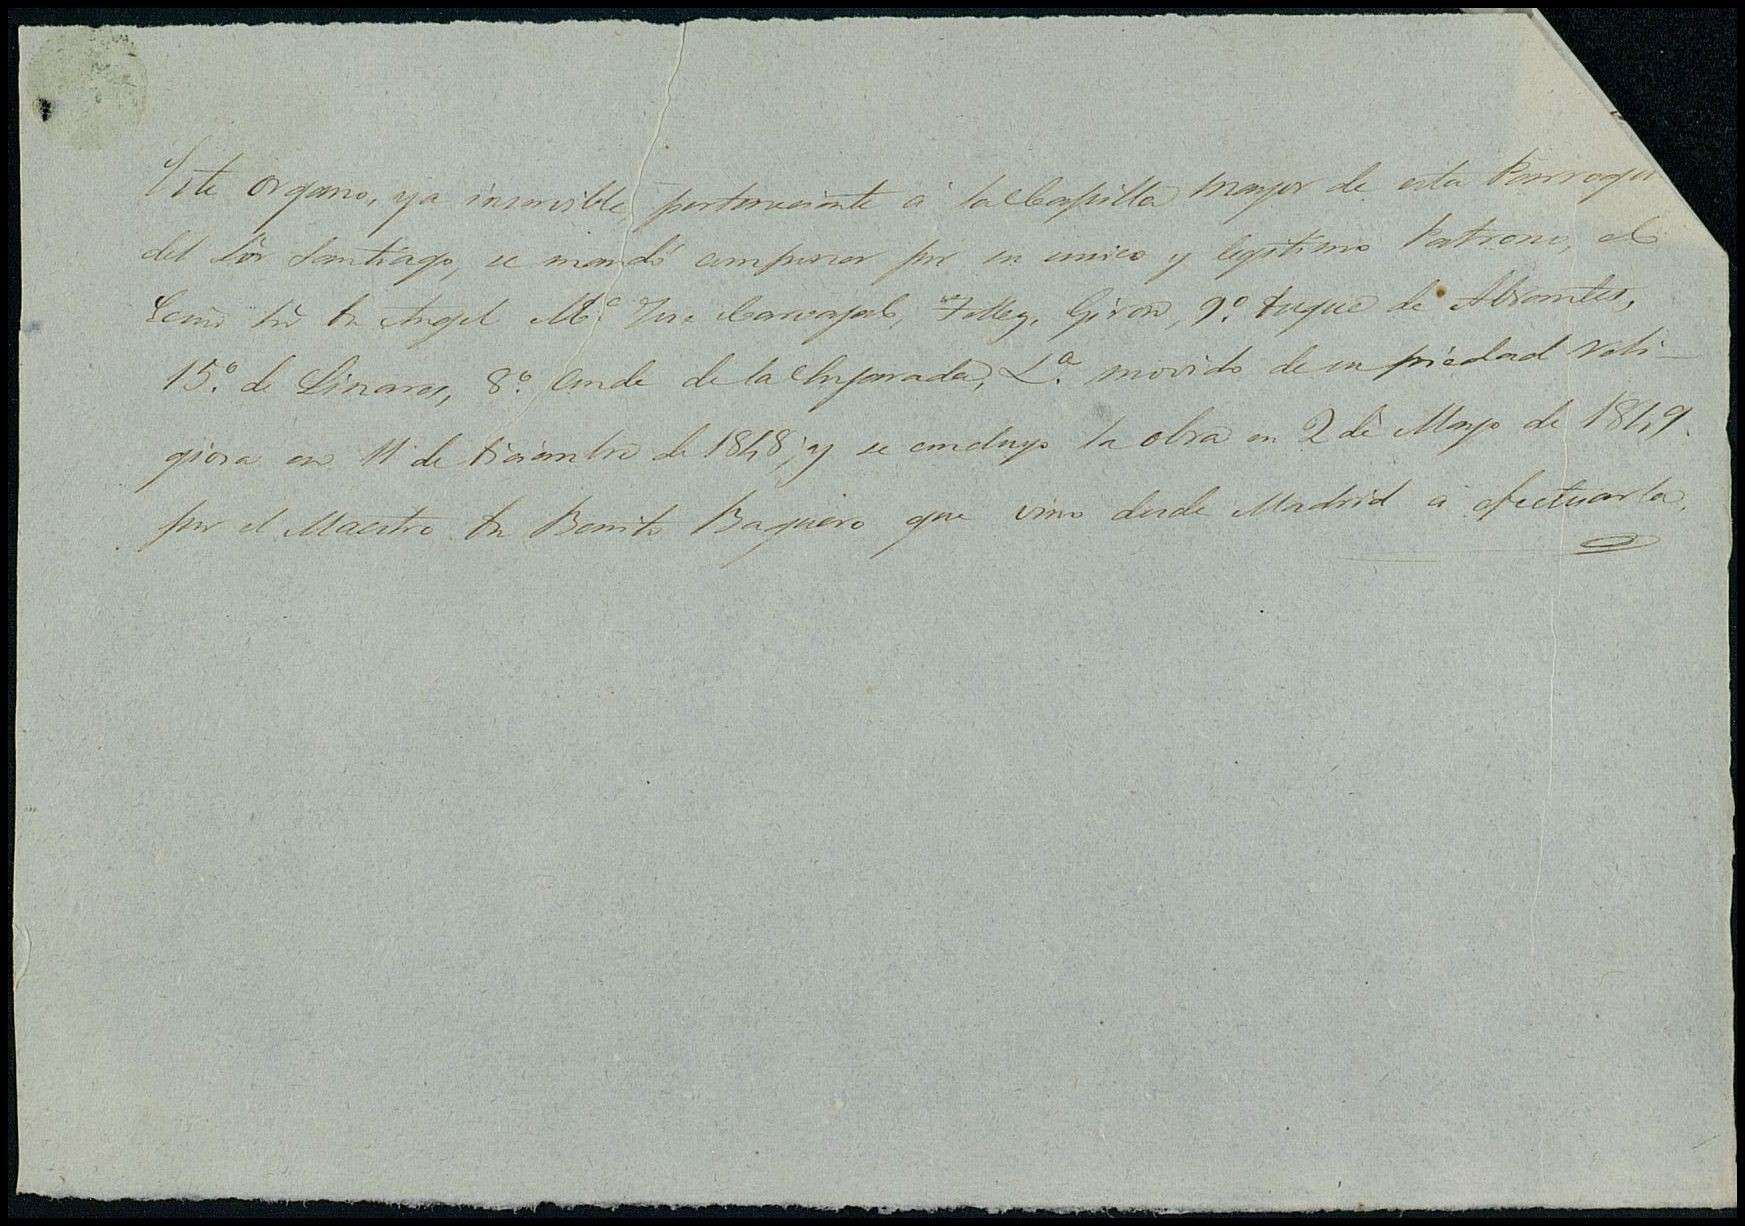 Este organo, ya inservible, perteneciente á la Capilla mayor de esta Parroquia
del Sōr Santiago, se mandó componer por su unico y legitimo Patrono, el
Ecmō Sr̄ Dn Angel Mª. Jose Carvajal, Tellez, Giron, 9º. Duque de Abrantes,
15º. de Linares, 8º. Conde de la Enjarada, &ª. movido de su piedad reli-
giosa en 11 de Diciembre de 1848; y se concluyo la obra en 2 de Mayo de 1849.
por el Maestro Dn Benito Baquero que vino desde Madrid á efectuarla.